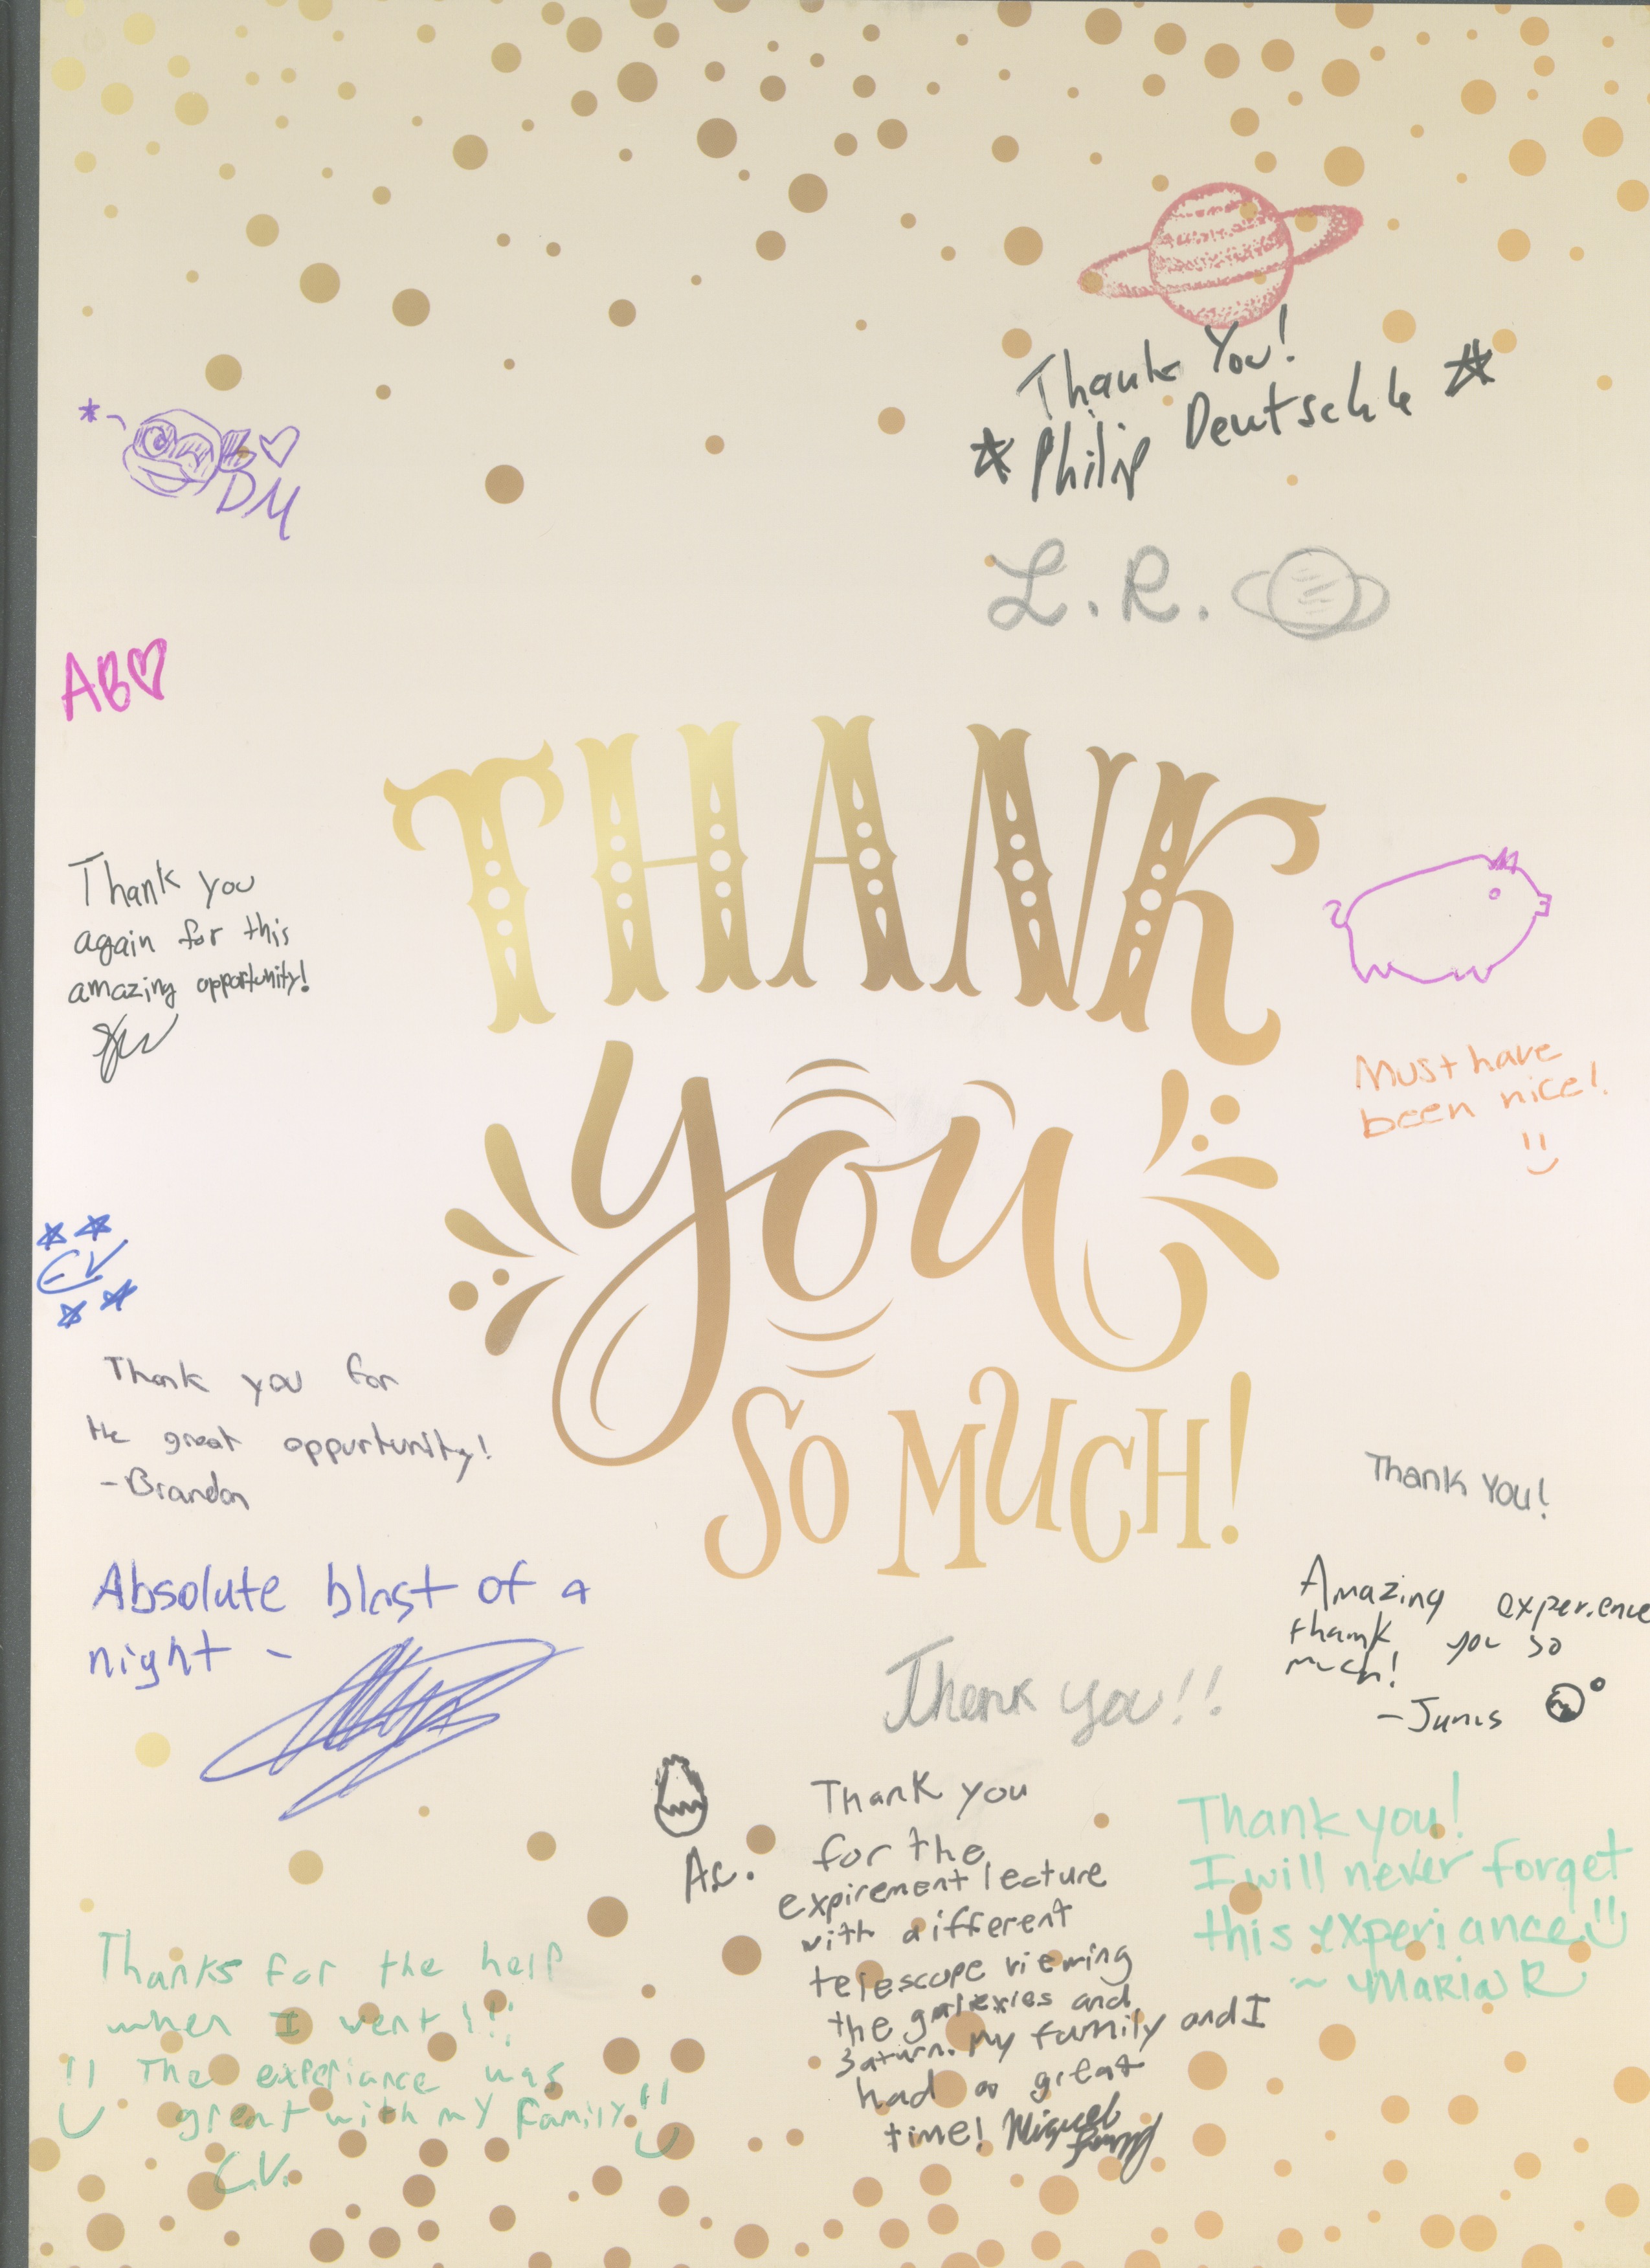 Thank You!
Philip Deutschle
DM
L. R.
AB
THANK
YOU
SO MUCH!
Thank you
again for this
amazing opportunity!
Must have
been nice!
CV
Thank you for
the great oppurtunity!
-Brandon
Thank You!
Absolute blast of a
night -
Amazing experience
thank you so
much!
Thank you!!
Thank you
for the
expirement lecture
with different
telescope viewing
the galexies and
Saturn. My family and I
had a great
time! Miguel
Ac.
Thank you!
I will never forget
this experiance
~ Maria R
Thanks for the help
when I went!!!
The experiance was
great with my family
C.V.